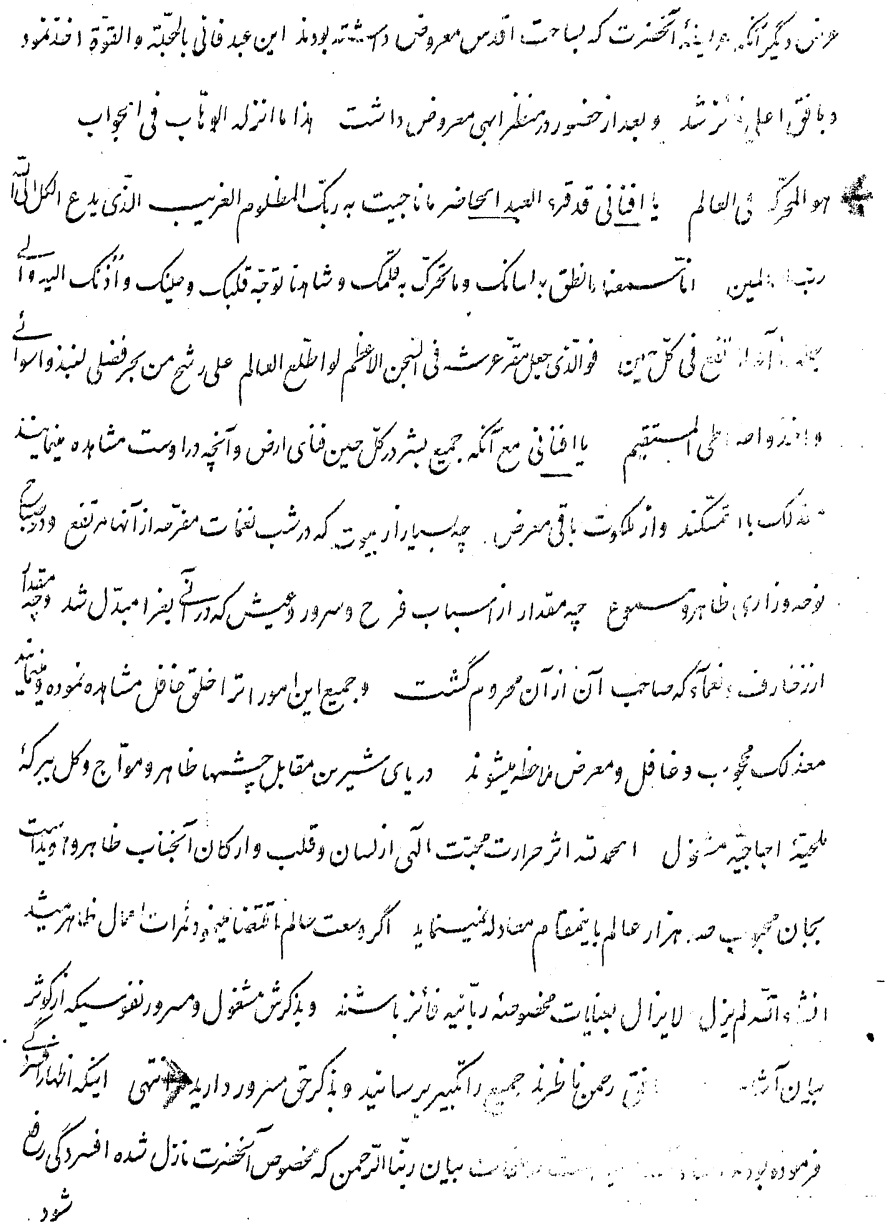 عرض دیگر آنکه عریضهٔ آنحضرت که بساحت اقدس معروض داشته بودند این عبد فانی بالمحبّة والقوّة اخذ نمود
و بافق اعلی فائز شد و بعد از حضور در منظر ابهی معروض داشت هذا ما انزله الوهّاب فی الجواب
هو المحرّک فی العالم یا افنانی قد قرء العبد الحاضر ما ناجیت به ربّک المظلوم الغریب الّذی یدع الکل الی اللّه
ربّ العالمین انّا سمعنا ما نطق به لسانک وما تحرّک به قلمک و شاهدنا توجّه قلبک وعینک واُذنک الیه والی
ارتفع فی کلّ حین فوالّذی جعل مقرّ عرشه فی السّجن الاعظم لو اطّلع العالم علی رشح من بحر فضلی لنبذوا سوائی
واخذوا صراطی المستقیم یا افنانی مع آنکه جمیع بشر در کلّ حین فنای ارض وآنچه در اوست مشاهده مینمایند
معذلک باو متمسّکند واز ملکوت باقی معرض چه بسیار از بیوت که در شب نغمات مفرّحه از آنها مرتفع ودر صباح
نوحه وزاری ظاهر ومسموع چه مقدار از اسباب فرح وسرور وعیش که در آنی بعزا مبدّل شد وچه مقدار
از زخارف ونعمآء که صاحب آن از آن محروم گشت و جمیع این امور اترا خلق غافل مشاهده نموده ومینمایند
معذلک محجوب و غافل ومعرض ملاحظه میشوند دریای شیرین مقابل چشمها ظاهر وموّاج وکل ببرکهٔ
ملحیّهٔ اجاجیّه مشغول الحمد للّه اثر حرارت محبّت الهی از لسان وقلب وارکان آنجناب ظاهر وهویداست
بجان محبوب صد هزار عالم باینمقام معادله نمینماید اگر وسعت عالم اقتضا مینمود ثمرات اعمال ظاهر میشد
انشاءاللّه لم یزل لا یزال بعنایات مخصوصهٔ ربّانیه فائز باشند وبذکرش مشغول ومسرور نفوسیکه از کوثر
بیان افق رحمن ناظرند جمیع را تکبیر برسانید و بذکر حق مسرور دارید انتهی اینکه اظهار افسردگی
فرموده بودند بیان ربّنا الرّحمن که مخصوص آنحضرت نازل شده افسردگی رفع
شود